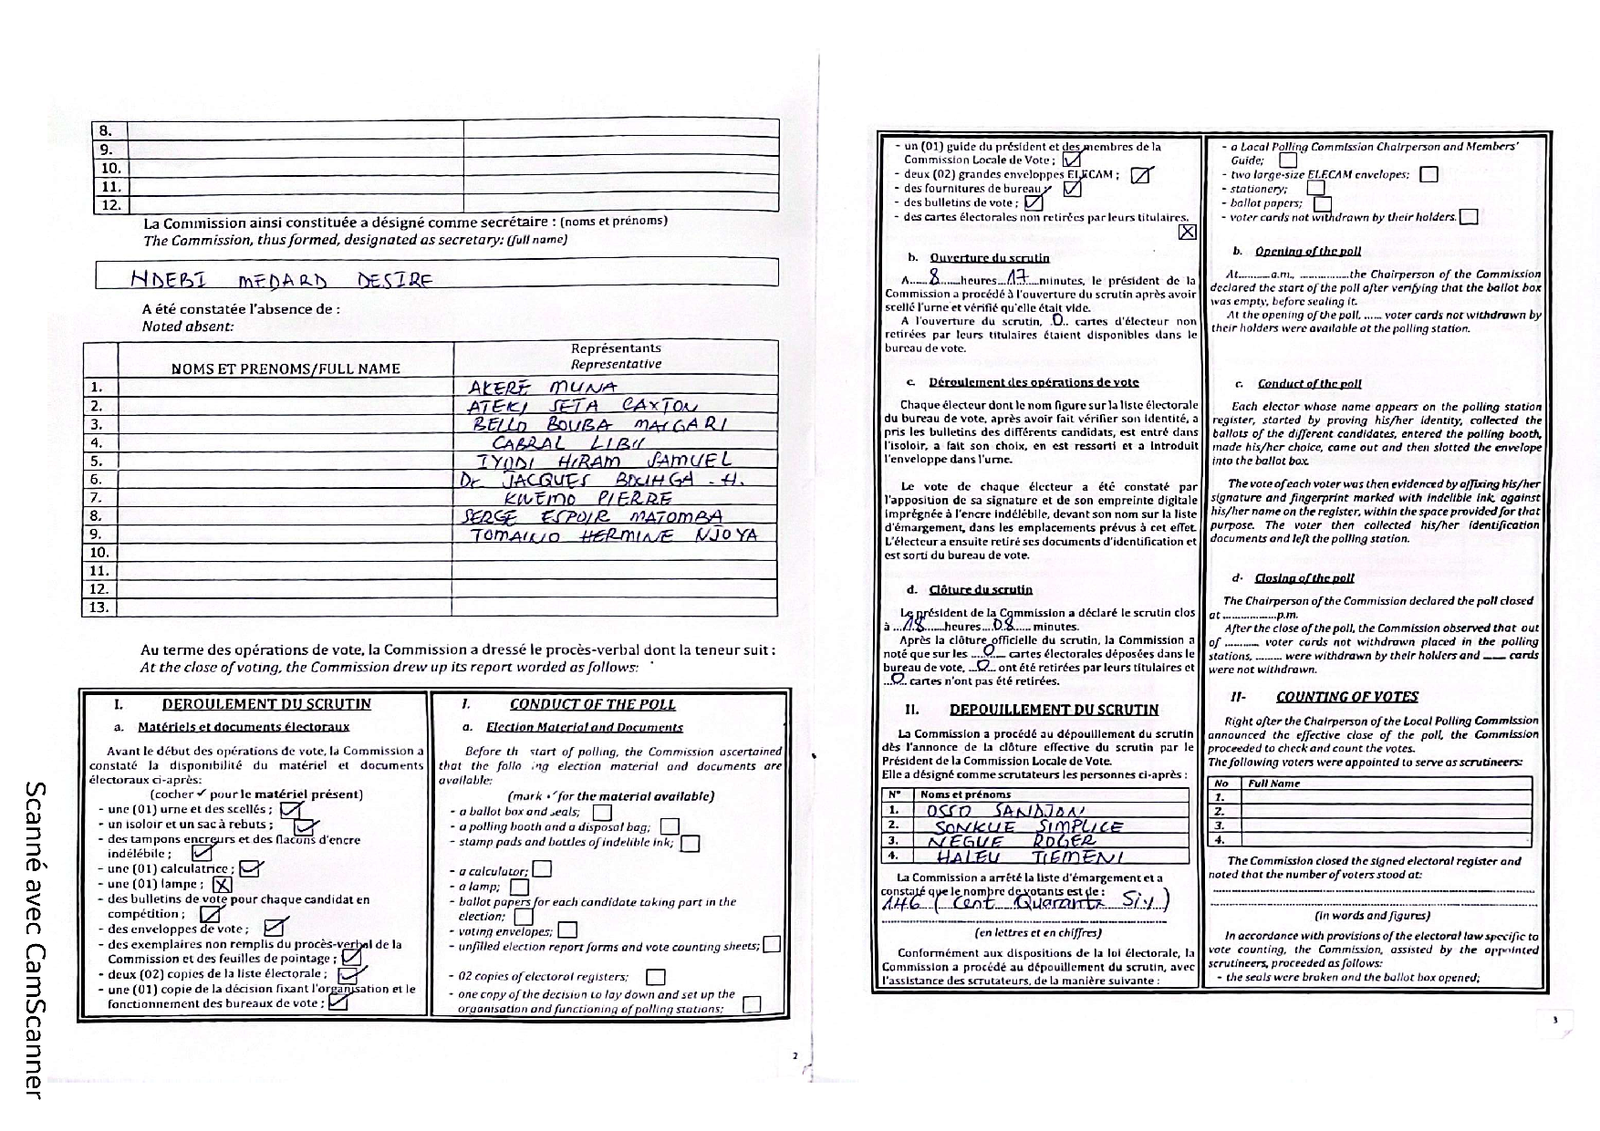 8.
9.
10.
11.
12.
La Commission ainsi constituée a désigné comme secrétaire : (noms et prénoms)
The Commission, thus formed, designated as secretary: (full name)
NDEBI MEDARD DESIRE
A été constatée l'absence de :
Noted absent:
NOMS ET PRENOMS/FULL NAME
Représentants
Representative
1. AKERE MUNA
2. ATEKI SETA CAXTON
3. BELLO BOUBA MAIGARI
4. CABRAL LIBII
5. IYODI HIRAM SAMUEL
6. Dr JACQUES BOUHGA -H.
7. KWEMO PIERRE
8. SERGE ESPOIR MATOMBA
9. TOMAINO HERMINE NJOYA
10.
11.
12.
13.
Au terme des opérations de vote, la Commission a dressé le procès-verbal dont la teneur suit :
At the close of voting, the Commission drew up its report worded as follows:
I. DEROULEMENT DU SCRUTIN
a. Matériels et documents électoraux
Avant le début des opérations de vote, la Commission a
constaté la disponibilité du matériel et documents
électoraux ci-après:
(cocher ✓ pour le matériel présent)
- une (01) urne et des scellés ; ☑
- un isoloir et un sac à rebuts ; ☑
- des tampons encreurs et des flacons d'encre
indélébile ; ☑
- une (01) calculatrice ; ☑
- une (01) lampe ; ☒
- des bulletins de vote pour chaque candidat en
compétition ; ☑
- des enveloppes de vote ; ☑
- des exemplaires non remplis du procès-verbal de la
Commission et des feuilles de pointage ; ☑
- deux (02) copies de la liste électorale ; ☑
- une (01) copie de la décision fixant l'organisation et le
fonctionnement des bureaux de vote ; ☑
I. CONDUCT OF THE POLL
a. Election Material and Documents
Before th start of polling, the Commission ascertained
that the follo ing election material and documents are
available:
(mark ✓ for the material available)
- a ballot box and seals; ☐
- a polling booth and a disposal bag; ☐
- stamp pads and bottles of indelible ink; ☐
- a calculator; ☐
- a lamp; ☐
- ballot papers for each candidate taking part in the
election; ☐
- voting envelopes; ☐
- unfilled election report forms and vote counting sheets; ☐
- 02 copies of electoral registers; ☐
- one copy of the decision to lay down and set up the
organisation and functioning of polling stations; ☐
2
- un (01) guide du président et des membres de la
Commission Locale de Vote ; ☑
- deux (02) grandes enveloppes ELECAM ; ☑
- des fournitures de bureau ; ☑
- des bulletins de vote ; ☑
- des cartes électorales non retirées par leurs titulaires.
☒
b. Ouverture du scrutin
A......8......heures...17...minutes, le président de la
Commission a procédé à l'ouverture du scrutin après avoir
scellé l'urne et vérifié qu'elle était vide.
A l'ouverture du scrutin, .0.. cartes d'électeur non
retirées par leurs titulaires étaient disponibles dans le
bureau de vote.
c. Déroulement des opérations de vote
Chaque électeur dont le nom figure sur la liste électorale
du bureau de vote, après avoir fait vérifier son identité, a
pris les bulletins des différents candidats, est entré dans
l'isoloir, a fait son choix, en est ressorti et a introduit
l'enveloppe dans l'urne.
Le vote de chaque électeur a été constaté par
l'apposition de sa signature et de son empreinte digitale
imprégnée à l'encre indélébile, devant son nom sur la liste
d'émargement, dans les emplacements prévus à cet effet.
L'électeur a ensuite retiré ses documents d'identification et
est sorti du bureau de vote.
d. Clôture du scrutin
Le président de la Commission a déclaré le scrutin clos
à ...18......heures...08...... minutes.
Après la clôture officielle du scrutin, la Commission a
noté que sur les ...0.... cartes électorales déposées dans le
bureau de vote, ...0... ont été retirées par leurs titulaires et
..0.. cartes n'ont pas été retirées.
II. DEPOUILLEMENT DU SCRUTIN
La Commission a procédé au dépouillement du scrutin
dès l'annonce de la clôture effective du scrutin par le
Président de la Commission Locale de Vote.
Elle a désigné comme scrutateurs les personnes ci-après :
N° Noms et prénoms
1. OSSO SANDJON
2. SONKUE SIMPLICE
3. NEGUE ROGER
4. HALEU TIEMENI
La Commission a arrêté la liste d'émargement et a
constaté que le nombre de votants est de :
146 ( Cent Quarante Six )
(en lettres et en chiffres)
Conformément aux dispositions de la loi électorale, la
Commission a procédé au dépouillement du scrutin, avec
l'assistance des scrutateurs, de la manière suivante :
- a Local Polling Commission Chairperson and Members'
Guide; ☐
- two large-size ELECAM envelopes; ☐
- stationery; ☐
- ballot papers; ☐
- voter cards not withdrawn by their holders. ☐
b. Opening of the poll
At...........a.m., ................the Chairperson of the Commission
declared the start of the poll after verifying that the ballot box
was empty, before sealing it.
At the opening of the poll, ...... voter cards not withdrawn by
their holders were available at the polling station.
c. Conduct of the poll
Each elector whose name appears on the polling station
register, started by proving his/her identity, collected the
ballots of the different candidates, entered the polling booth,
made his/her choice, came out and then slotted the envelope
into the ballot box.
The vote of each voter was then evidenced by affixing his/her
signature and fingerprint marked with indelible ink, against
his/her name on the register, within the space provided for that
purpose. The voter then collected his/her identification
documents and left the polling station.
d- Closing of the poll
The Chairperson of the Commission declared the poll closed
at ..................p.m.
After the close of the poll, the Commission observed that out
of ........... voter cards not withdrawn placed in the polling
stations, ......... were withdrawn by their holders and ____ cards
were not withdrawn.
II- COUNTING OF VOTES
Right after the Chairperson of the Local Polling Commission
announced the effective close of the poll, the Commission
proceeded to check and count the votes.
The following voters were appointed to serve as scrutineers:
No Full Name
1.
2.
3.
4.
The Commission closed the signed electoral register and
noted that the number of voters stood at:
(in words and figures)
In accordance with provisions of the electoral law specific to
vote counting, the Commission, assisted by the appointed
scrutineers, proceeded as follows:
- the seals were broken and the ballot box opened;
3
Scanné avec CamScanner